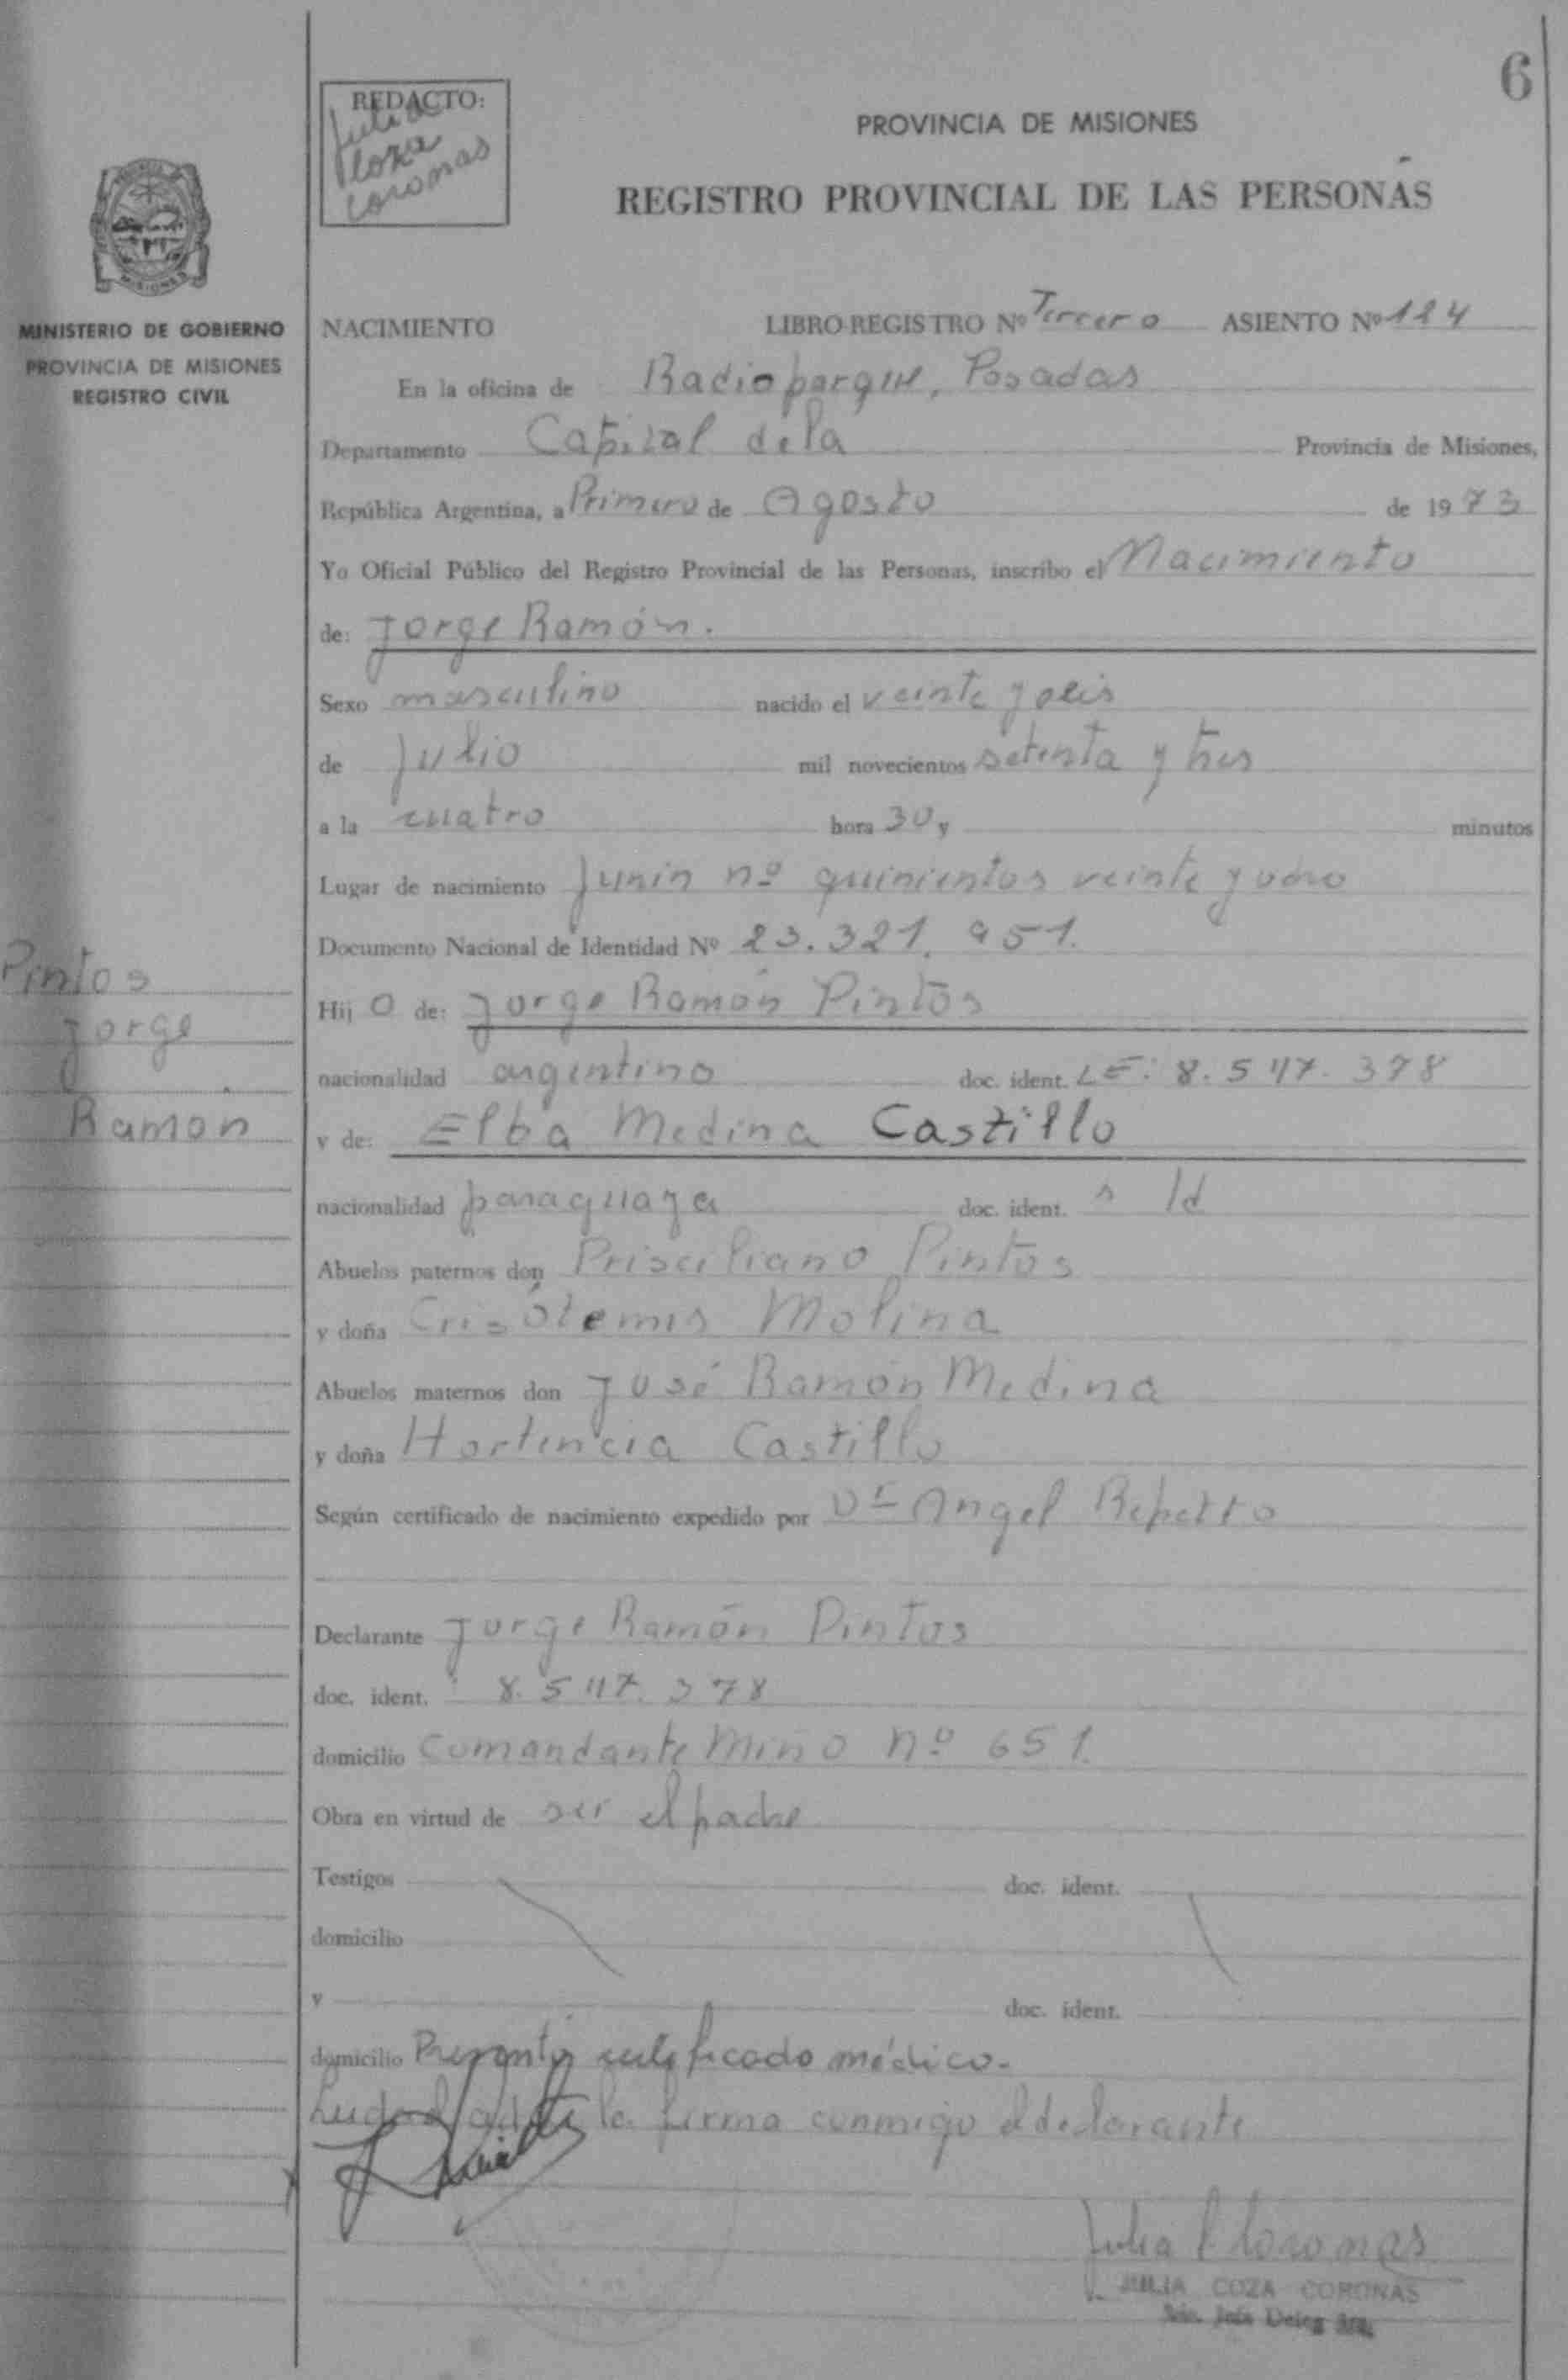 6
REDACTO:
Julia
Coza
Coronas
PROVINCIA DE MISIONES
REGISTRO PROVINCIAL DE LAS PERSONAS
MISIONES
MINISTERIO DE GOBIERNO
PROVINCIA DE MISIONES
REGISTRO CIVIL
NACIMIENTO LIBRO REGISTRO Nº Tercero ASIENTO Nº 124
En la oficina de Radioparque, Posadas
Departamento Capital de la Provincia de Misiones,
República Argentina, a Primero de Agosto de 1973
Yo Oficial Público del Registro Provincial de las Personas, inscribo el Nacimiento
de: Jorge Ramón.
Sexo masculino nacido el veinte y seis
de Julio mil novecientos setenta y tres
a la cuatro hora 30 y minutos
Lugar de nacimiento Junin nº quinientos veinte y ocho
Documento Nacional de Identidad Nº 23.321.951.
Hijo de: Jorge Ramón Pintos
nacionalidad argentino doc. ident. LE: 8.547.378
y de: Elba Medina Castillo
nacionalidad paraguaya doc. ident. s/d
Abuelos paternos don Prisciliano Pintos
y doña Crisótemis Molina
Abuelos maternos don José Ramón Medina
y doña Hortencia Castillo
Según certificado de nacimiento expedido por Dr Angel Repetto
Declarante Jorge Ramón Pintos
doc. ident. 8.547.378
domicilio Comandante Miño nº 651.
Obra en virtud de ser el padre
Testigos doc. ident.
domicilio
y doc. ident.
domicilio Presentó certificado médico.
la firma conmigo el declarante
Pintos
Jorge
Ramón
Julia C Coronas
JULIA COZA CORONAS